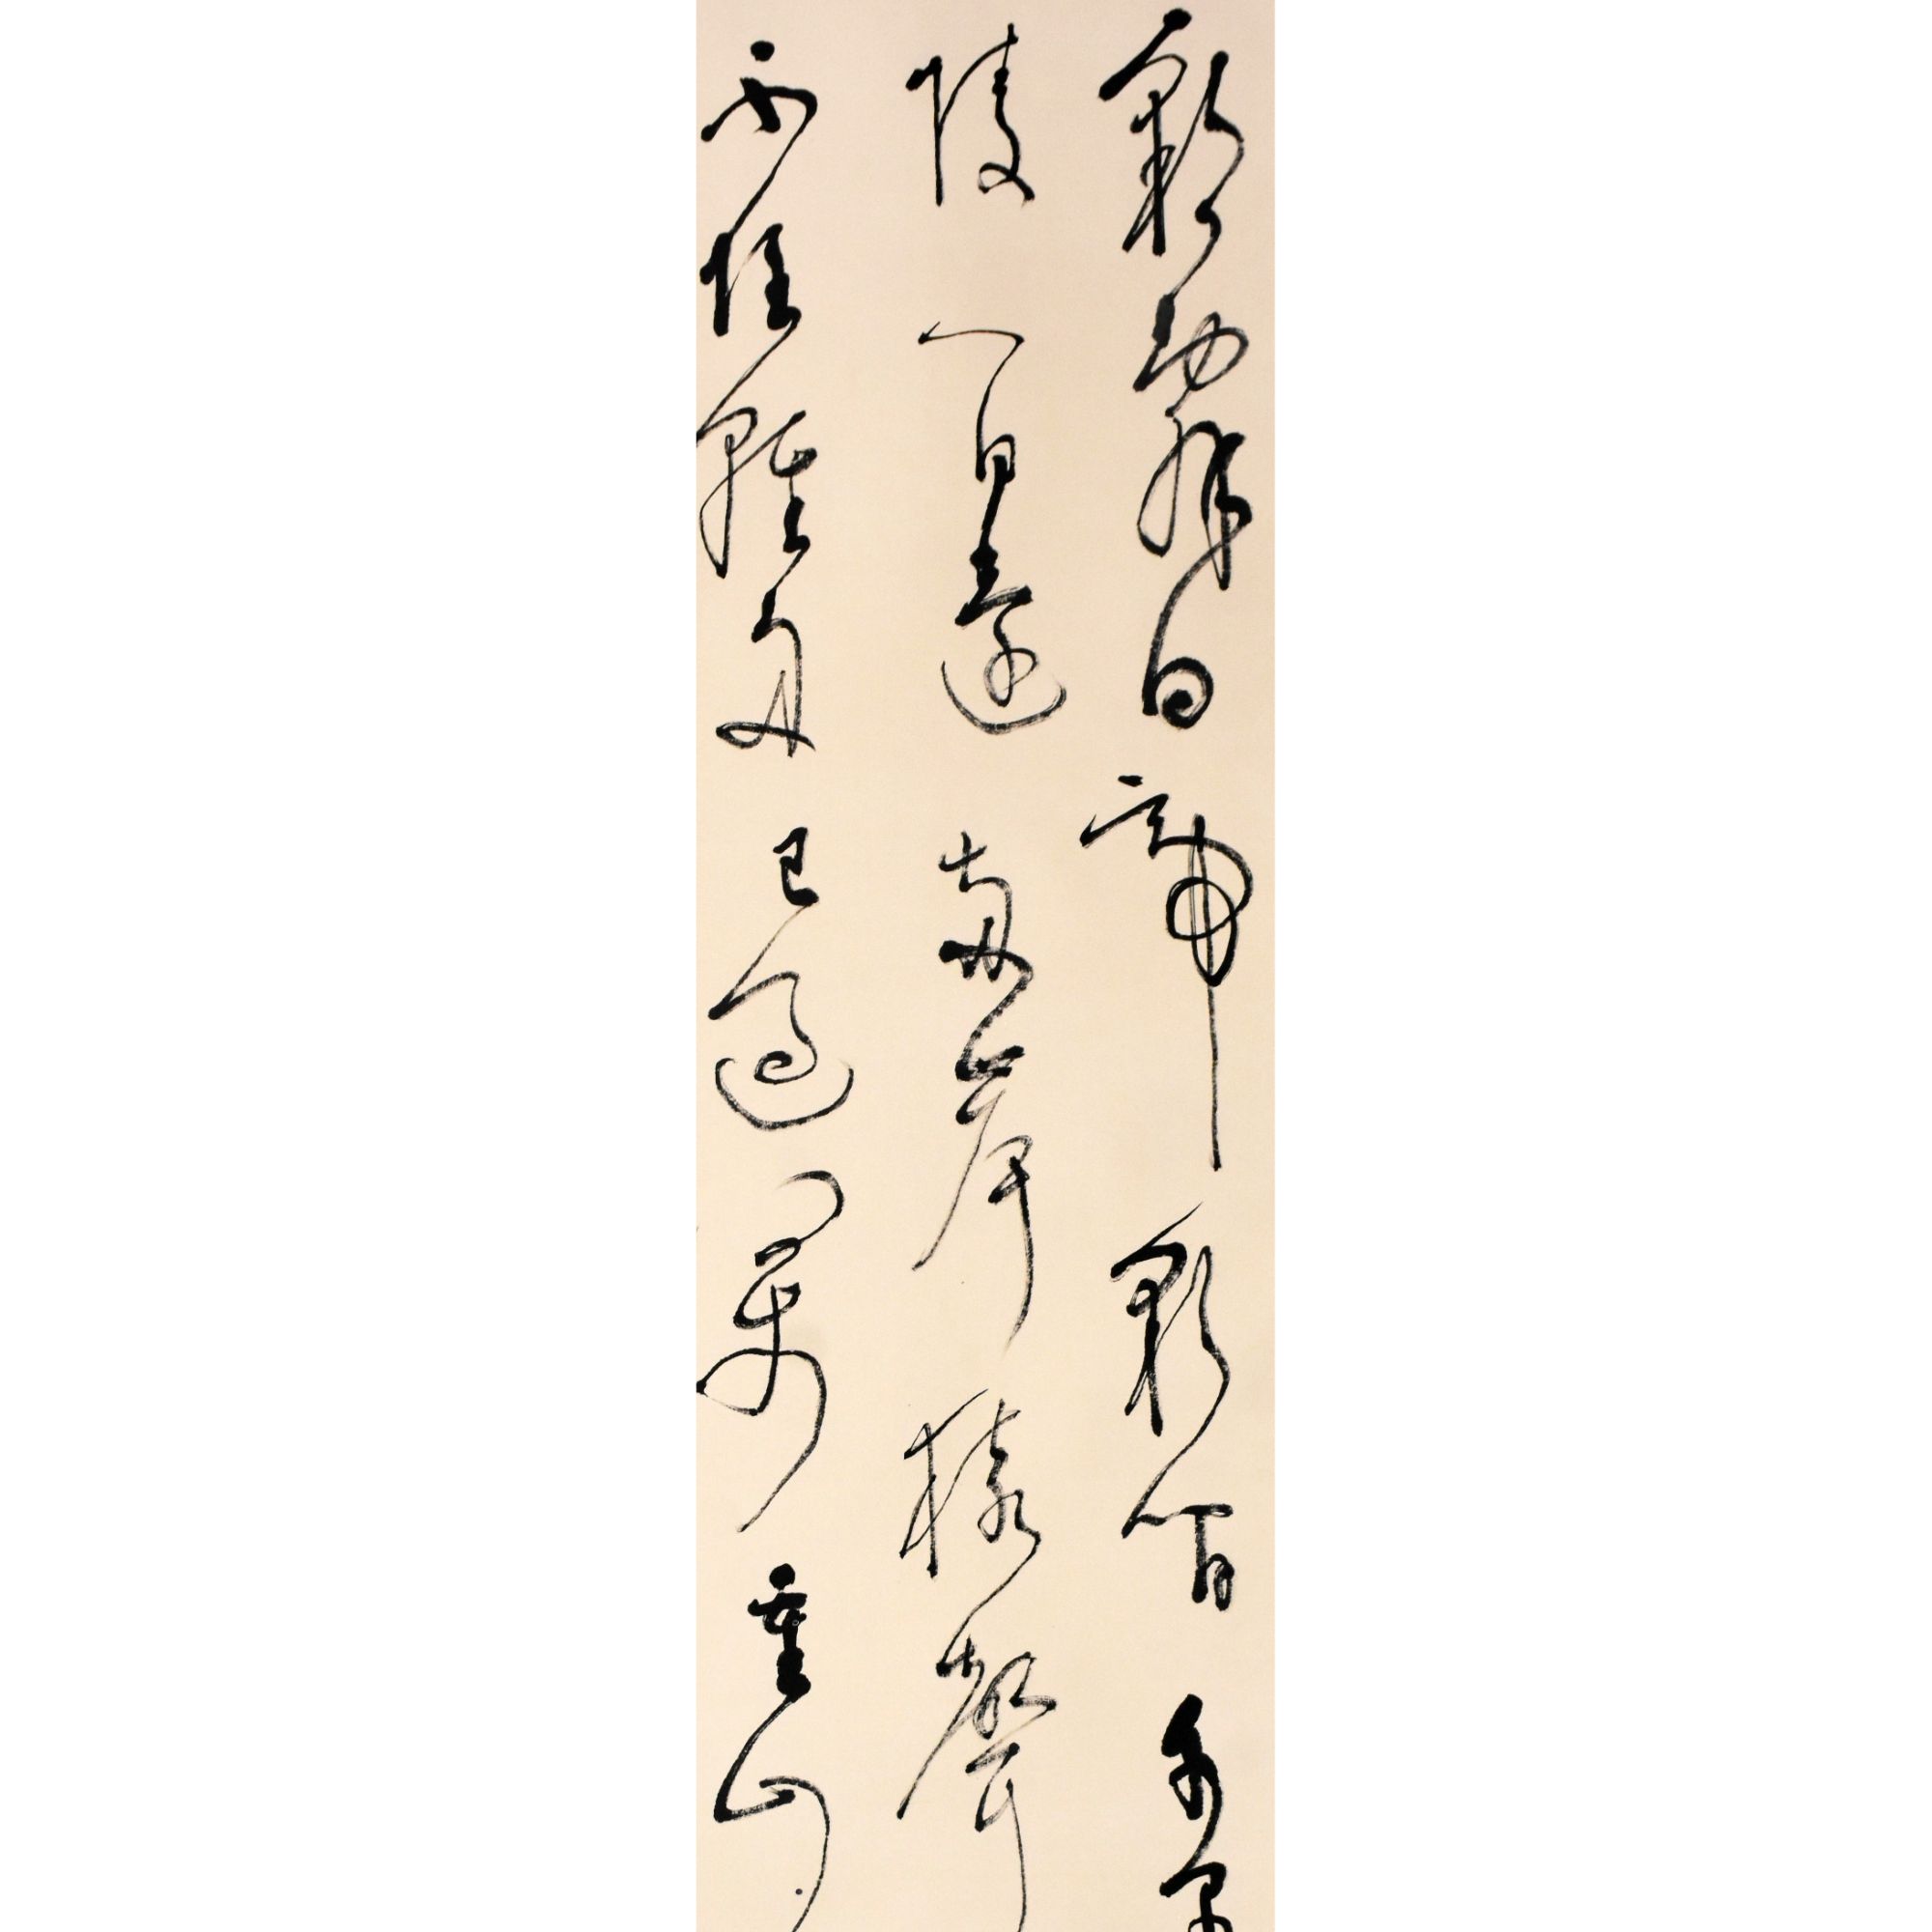 朝辭白帝彩間千里
陵一日還兩岸猿聲
不住輕舟已過萬重山